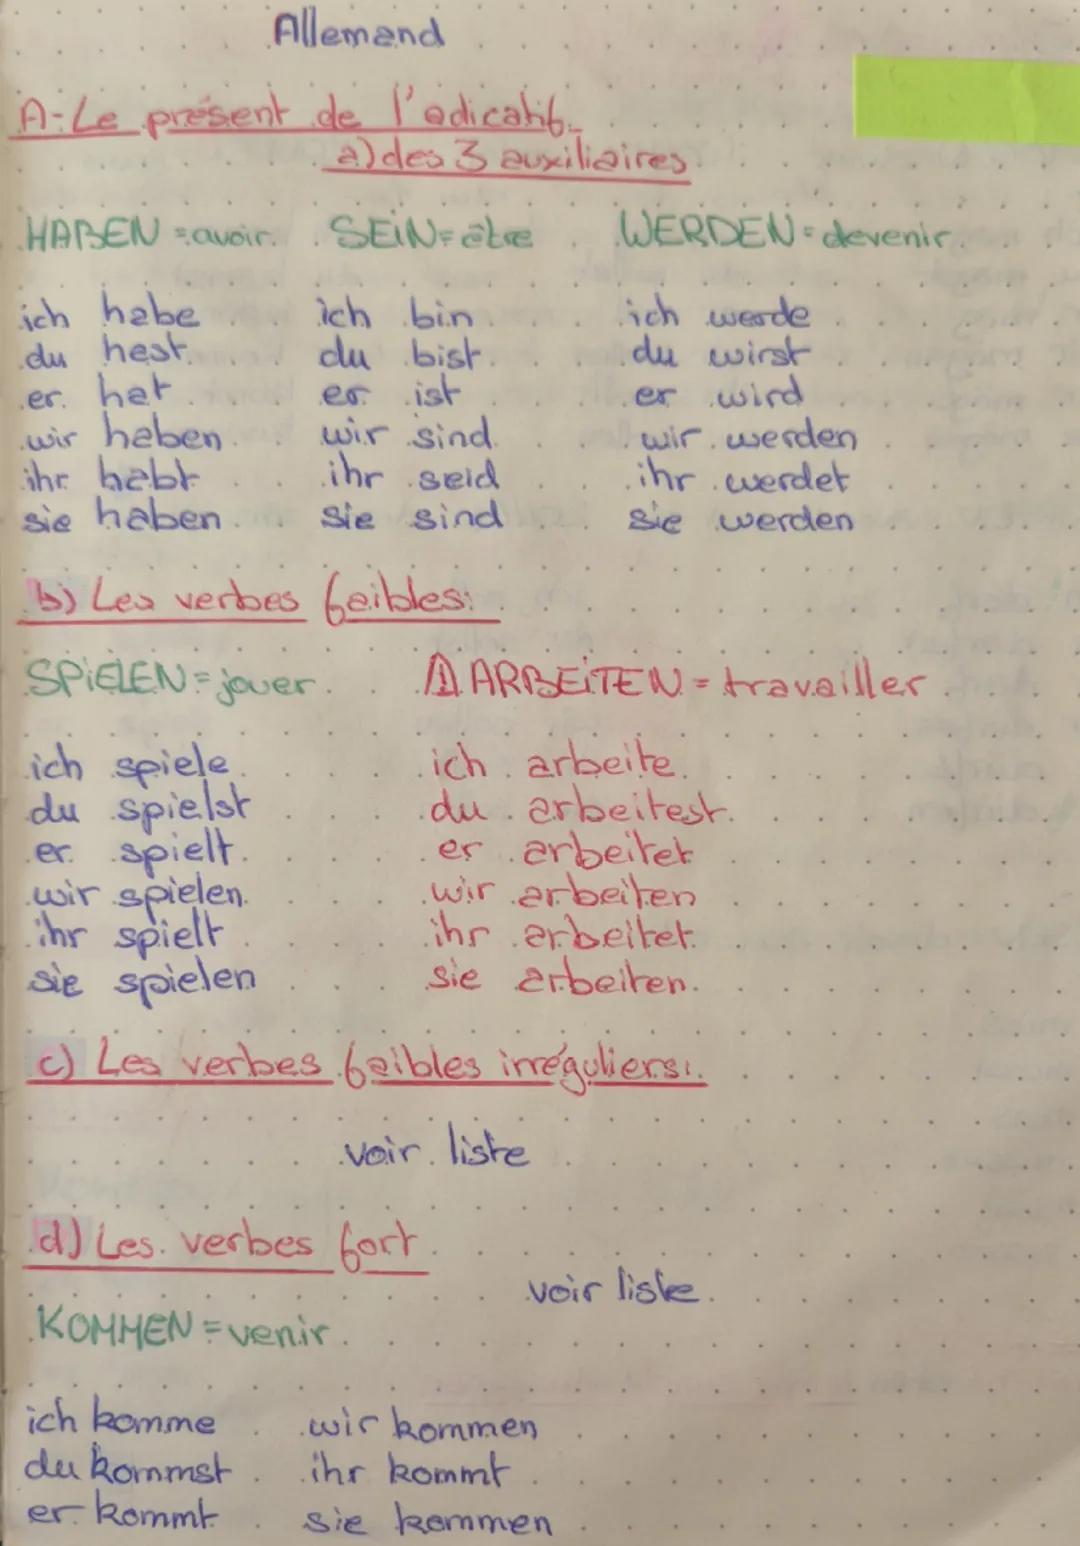 Allemand
A-Le présent de l'adicatif.
a) des 3 auxiliaires
HABEN = avoir. SEIN = être WERDEN = devenir.
ich habe ich bin ich werde
du hast du bist du wirst
er hat er ist er wird
wir haben wir sind wir werden
ihr habt ihr seid ihr werdet
sie haben sie sind sie werden
b) Les verbes faibles:
SPIELEN = jouer. ⚠ ARBEITEN = travailler
ich spiele ich arbeite
du spielst du arbeitest
er spielt er arbeitet
wir spielen wir arbeiten
ihr spielt ihr arbeitet
sie spielen sie arbeiten
c) Les verbes faibles irréguliers:
voir liste
d) Les verbes fort
voir liste
KOMMEN = venir
ich komme wir kommen
du kommst ihr kommt
er kommt sie kommen